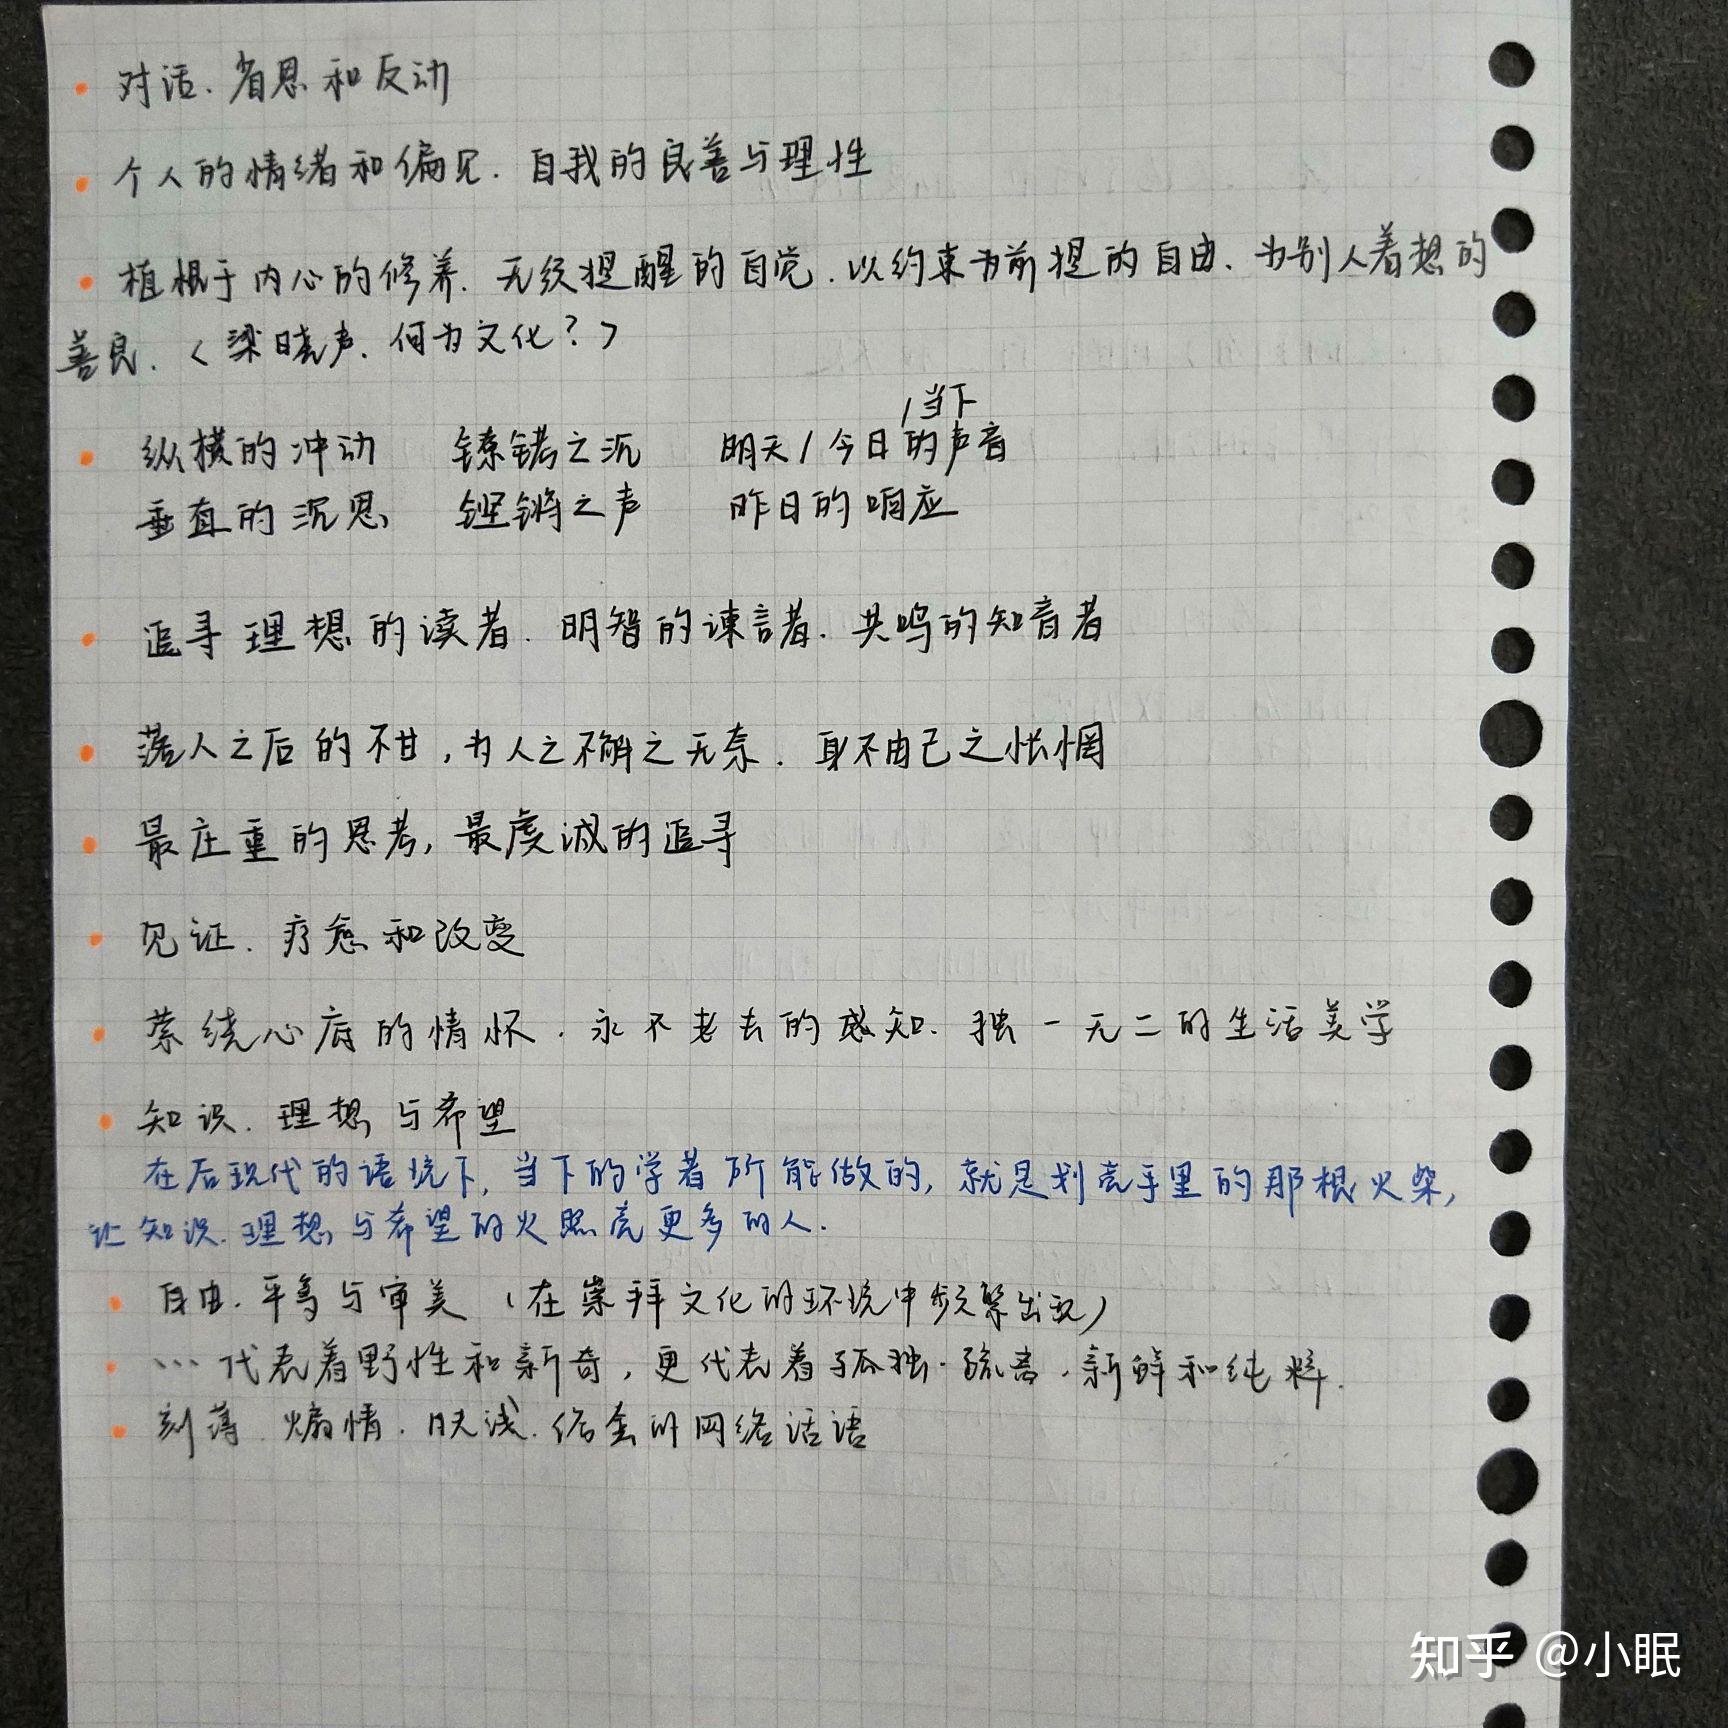 对话、省思和反动
个人的情绪和偏见、自我的良善与理性
植根于内心的修养、无须提醒的自觉、以约束为前提的自由、为别人着想的
善良.〈梁晓声、何为文化?〉
/当下
纵横的冲动 镣铐之沉 明天/今日的声音
垂直的沉思 铿锵之声 昨日的响应
追寻理想的读者、明智的谏言者、共鸣的知音者
落人之后的不甘,为人之不解之无奈、身不由己之怅惘
最庄重的思考,最虔诚的追寻
见证、疗愈和改变
萦绕心底的情怀、永不老去的感知、独一无二的生活美学
知识、理想与希望
在后现代的语境下,当下的学者所能做的,就是划亮手里的那根火柴,
让知识、理想与希望的火照亮更多的人.
自由、平等与审美(在崇拜文化的环境中频繁出现)
…代表着野性和新奇,更代表着孤独、疏离、新鲜和纯粹.
刻薄、煽情、肤浅、俗套的网络话语
知乎 @小眠